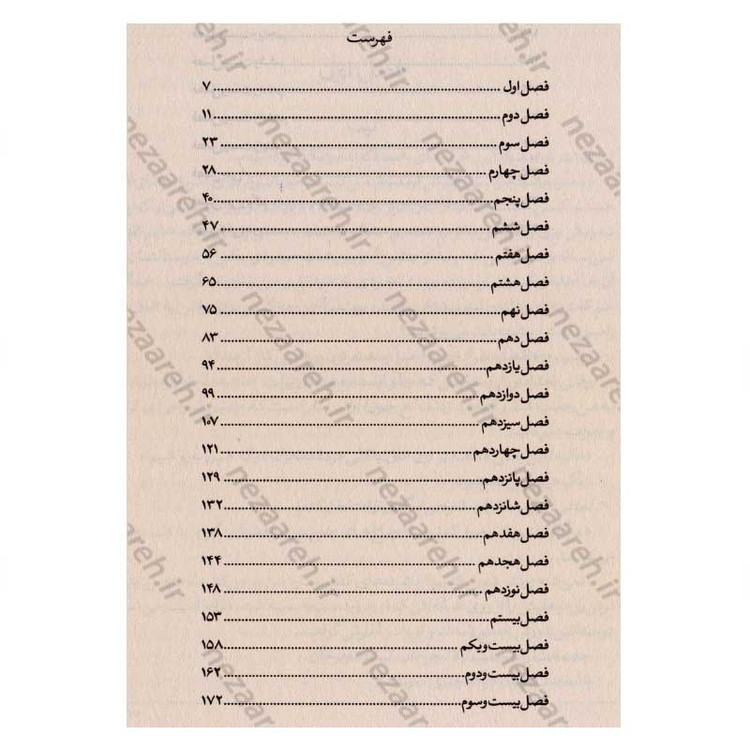 فهرست
فصل اول ........ ۷
فصل دوم ........ ۱۱
فصل سوم ........ ۲۳
فصل چهارم ........ ۲۸
فصل پنجم ........ ۴۰
فصل ششم ........ ۴۷
فصل هفتم ........ ۵۶
فصل هشتم ........ ۶۵
فصل نهم ........ ۷۵
فصل دهم ........ ۸۳
فصل یازدهم ........ ۹۴
فصل دوازدهم ........ ۹۹
فصل سیزدهم ........ ۱۰۷
فصل چهاردهم ........ ۱۲۱
فصل پانزدهم ........ ۱۲۹
فصل شانزدهم ........ ۱۳۲
فصل هفدهم ........ ۱۳۸
فصل هجدهم ........ ۱۴۴
فصل نوزدهم ........ ۱۴۸
فصل بیستم ........ ۱۵۳
فصل بیست و یکم ........ ۱۵۸
فصل بیست و دوم ........ ۱۶۲
فصل بیست و سوم ........ ۱۷۲
nezaareh.ir